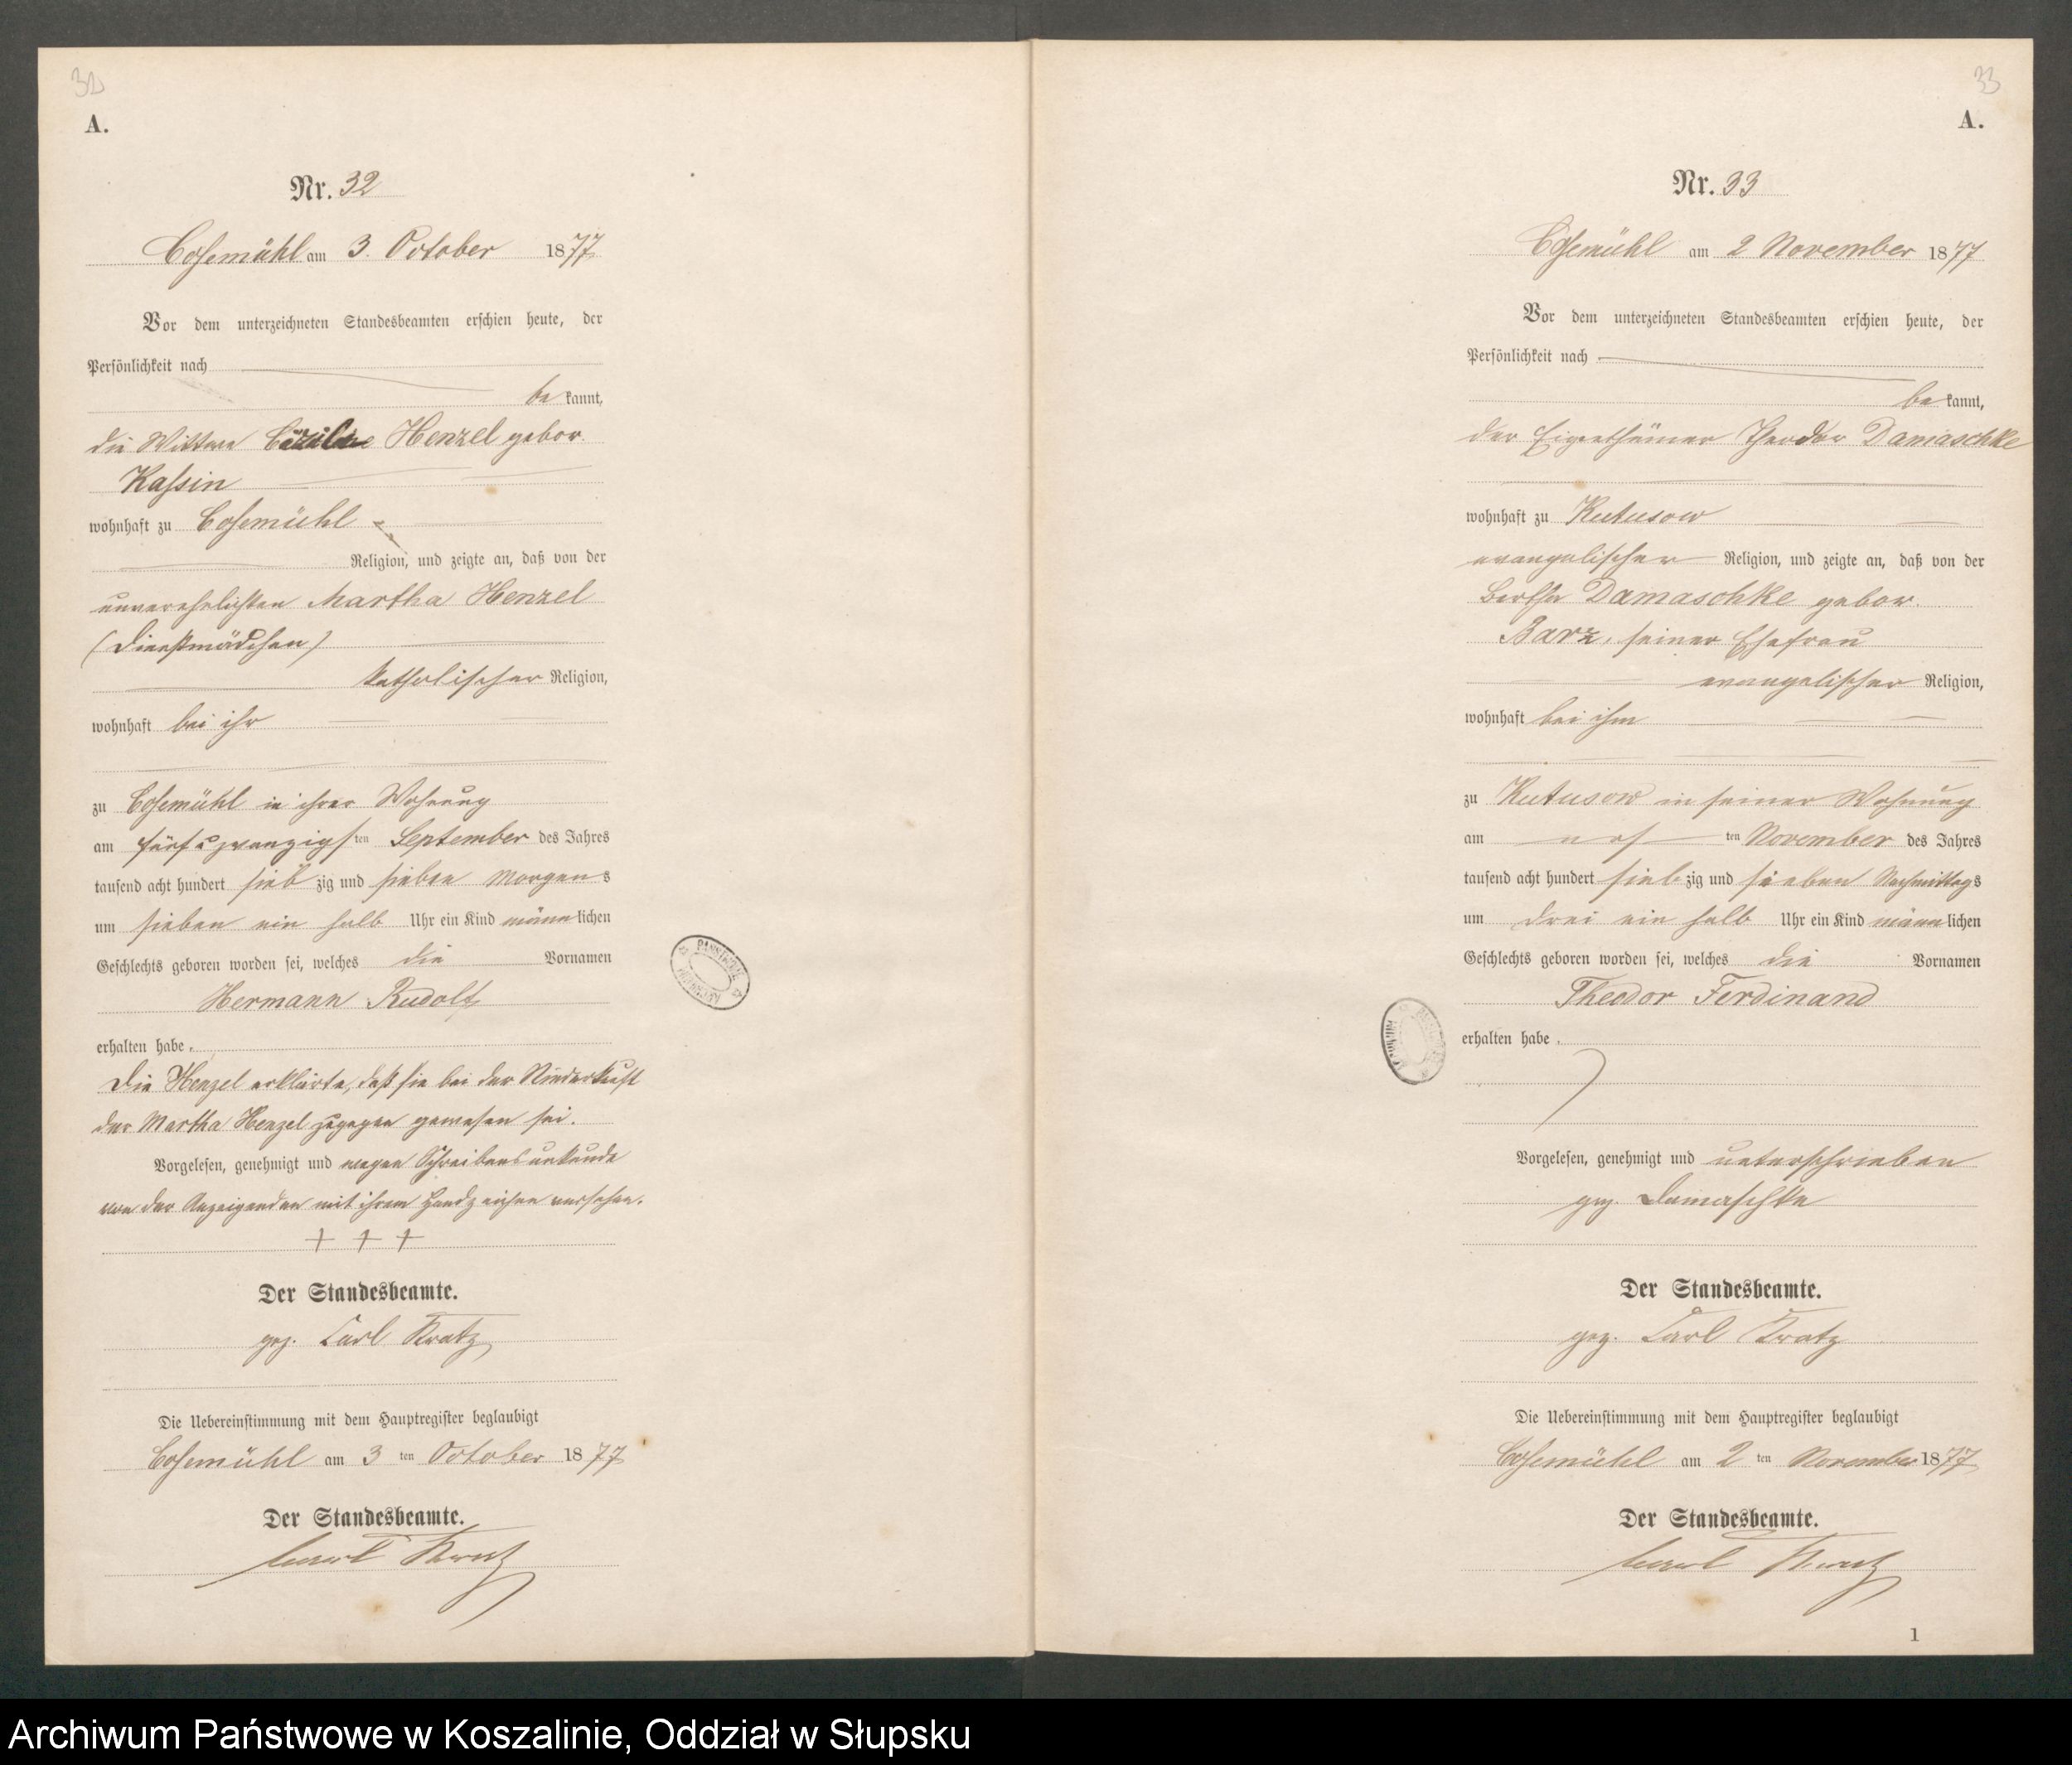 32
A.
Nr. 32
Cosemühl am 3. October 1877
Vor dem unterzeichneten Standesbeamten erschien heute, der
Persönlichkeit nach
bekannt,
die Wittwe Henzel gebor.
Kassin
wohnhaft zu Cosemühl
Religion, und zeigte an, daß von der
unverehelichten Martha Henzel
(Dienstmädchen)
katholischer Religion,
wohnhaft bei ihr
zu Cosemühl in ihrer Wohnung
am fünf u zwanzigsten September des Jahres
tausend acht hundert siebzig und sieben Morgens
um sieben ein halb Uhr ein Kind männlichen
Geschlechts geboren worden sei, welches die Vornamen
Hermann Rudolf
erhalten habe.
Die Henzel erklärte, daß sie bei der Niederkunft
der Martha Henzel zugegen gewesen sei.
Vorgelesen, genehmigt und wegen Schreibensunkunde
von der Anzeigenden mit ihrem Handzeichen versehen.
+ + +
Der Standesbeamte.
gez. Carl Kratz
Die Uebereinstimmung mit dem Hauptregister beglaubigt
Cosemühl am 3 ten October 1877
Der Standesbeamte.
Carl Kratz
33
A.
Nr. 33
Cosemühl am 2 November 1877
Vor dem unterzeichneten Standesbeamten erschien heute, der
Persönlichkeit nach
bekannt,
der Eigenthümer Theodor Damaschke
wohnhaft zu Kutusow
evangelischer Religion, und zeigte an, daß von der
Bertha Damaschke gebor.
Barz, seiner Ehefrau
evangelischer Religion,
wohnhaft bei ihm
zu Kutusow in seiner Wohnung
am ersten November des Jahres
tausend acht hundert siebzig und sieben Nachmittags
um drei ein halb Uhr ein Kind männlichen
Geschlechts geboren worden sei, welches die Vornamen
Theodor Ferdinand
erhalten habe.
Vorgelesen, genehmigt und unterschrieben
gez. Damaschke
Der Standesbeamte.
gez. Carl Kratz
Die Uebereinstimmung mit dem Hauptregister beglaubigt
Cosemühl am 2 ten November 1877
Der Standesbeamte.
Carl Kratz
1
Archiwum Państwowe w Koszalinie, Oddział w Słupsku